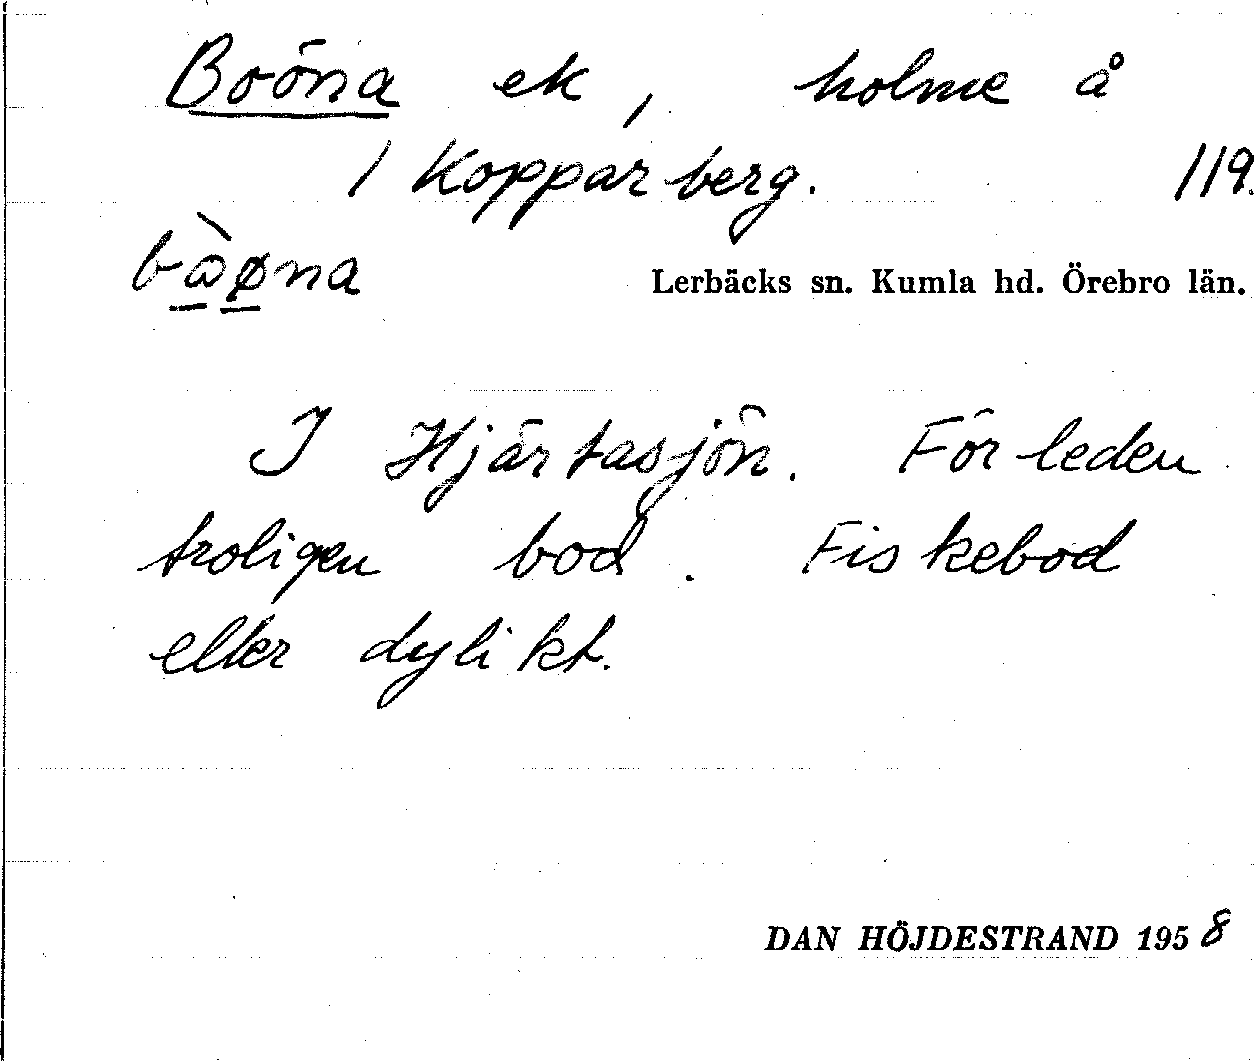 Boöna ek, holme å
1 Kopparberg. 119.
bὼø̱na
Lerbäcks sn. Kumla hd. Örebro län.
I Hjärtasjön. Förleden
troligen bod. Fiskebod
eller dylikt.
DAN HÖJDESTRAND 1958